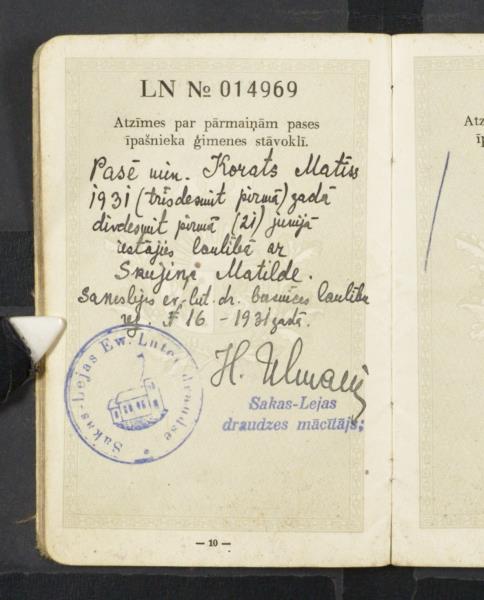 LN № 014969
Atzīmes par pārmaiņām pases
īpašnieka ģimenes stāvoklī.
Pasē min. Korats Matīss
1931 (trīsdesmit pirmā) gadā
divdesmit pirmā (21) junijā
iestājies laulībā ar
Skujiņa Matilde.
ev. lut. dr. baznīcas laulību
reg. № 16 - 1931 gadā.
H. Ulmanis
Sakas-Lejas
draudzes mācītājs:
Sakas-Lejas Ew. Luter. draudse
— 10 —
Atz
īp